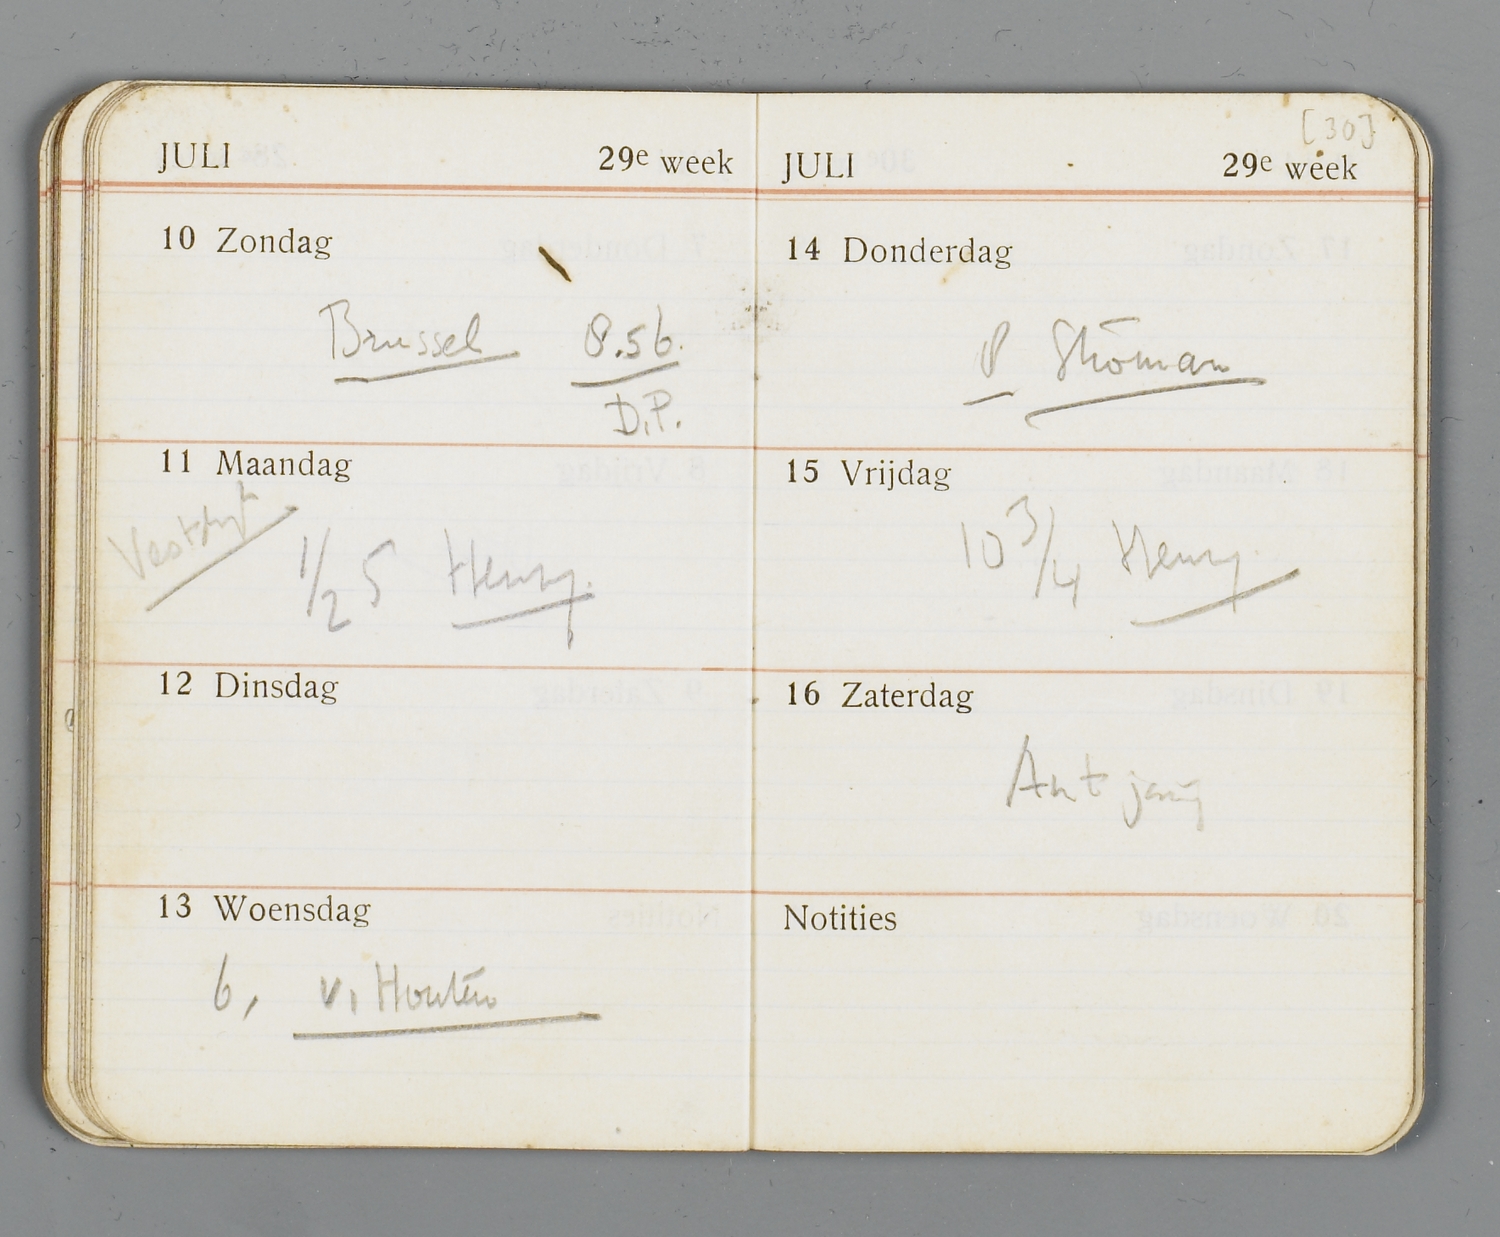 JULI 29e week
10 Zondag
Brussel 8.56.
D.P.
11 Maandag
1/2 5 Henny.
12 Dinsdag
13 Woensdag
6, v. Houten
[30]
JULI 29e week
14 Donderdag
8
15 Vrijdag
10 3/4 Henny.
16 Zaterdag
Ant jarig
Notities